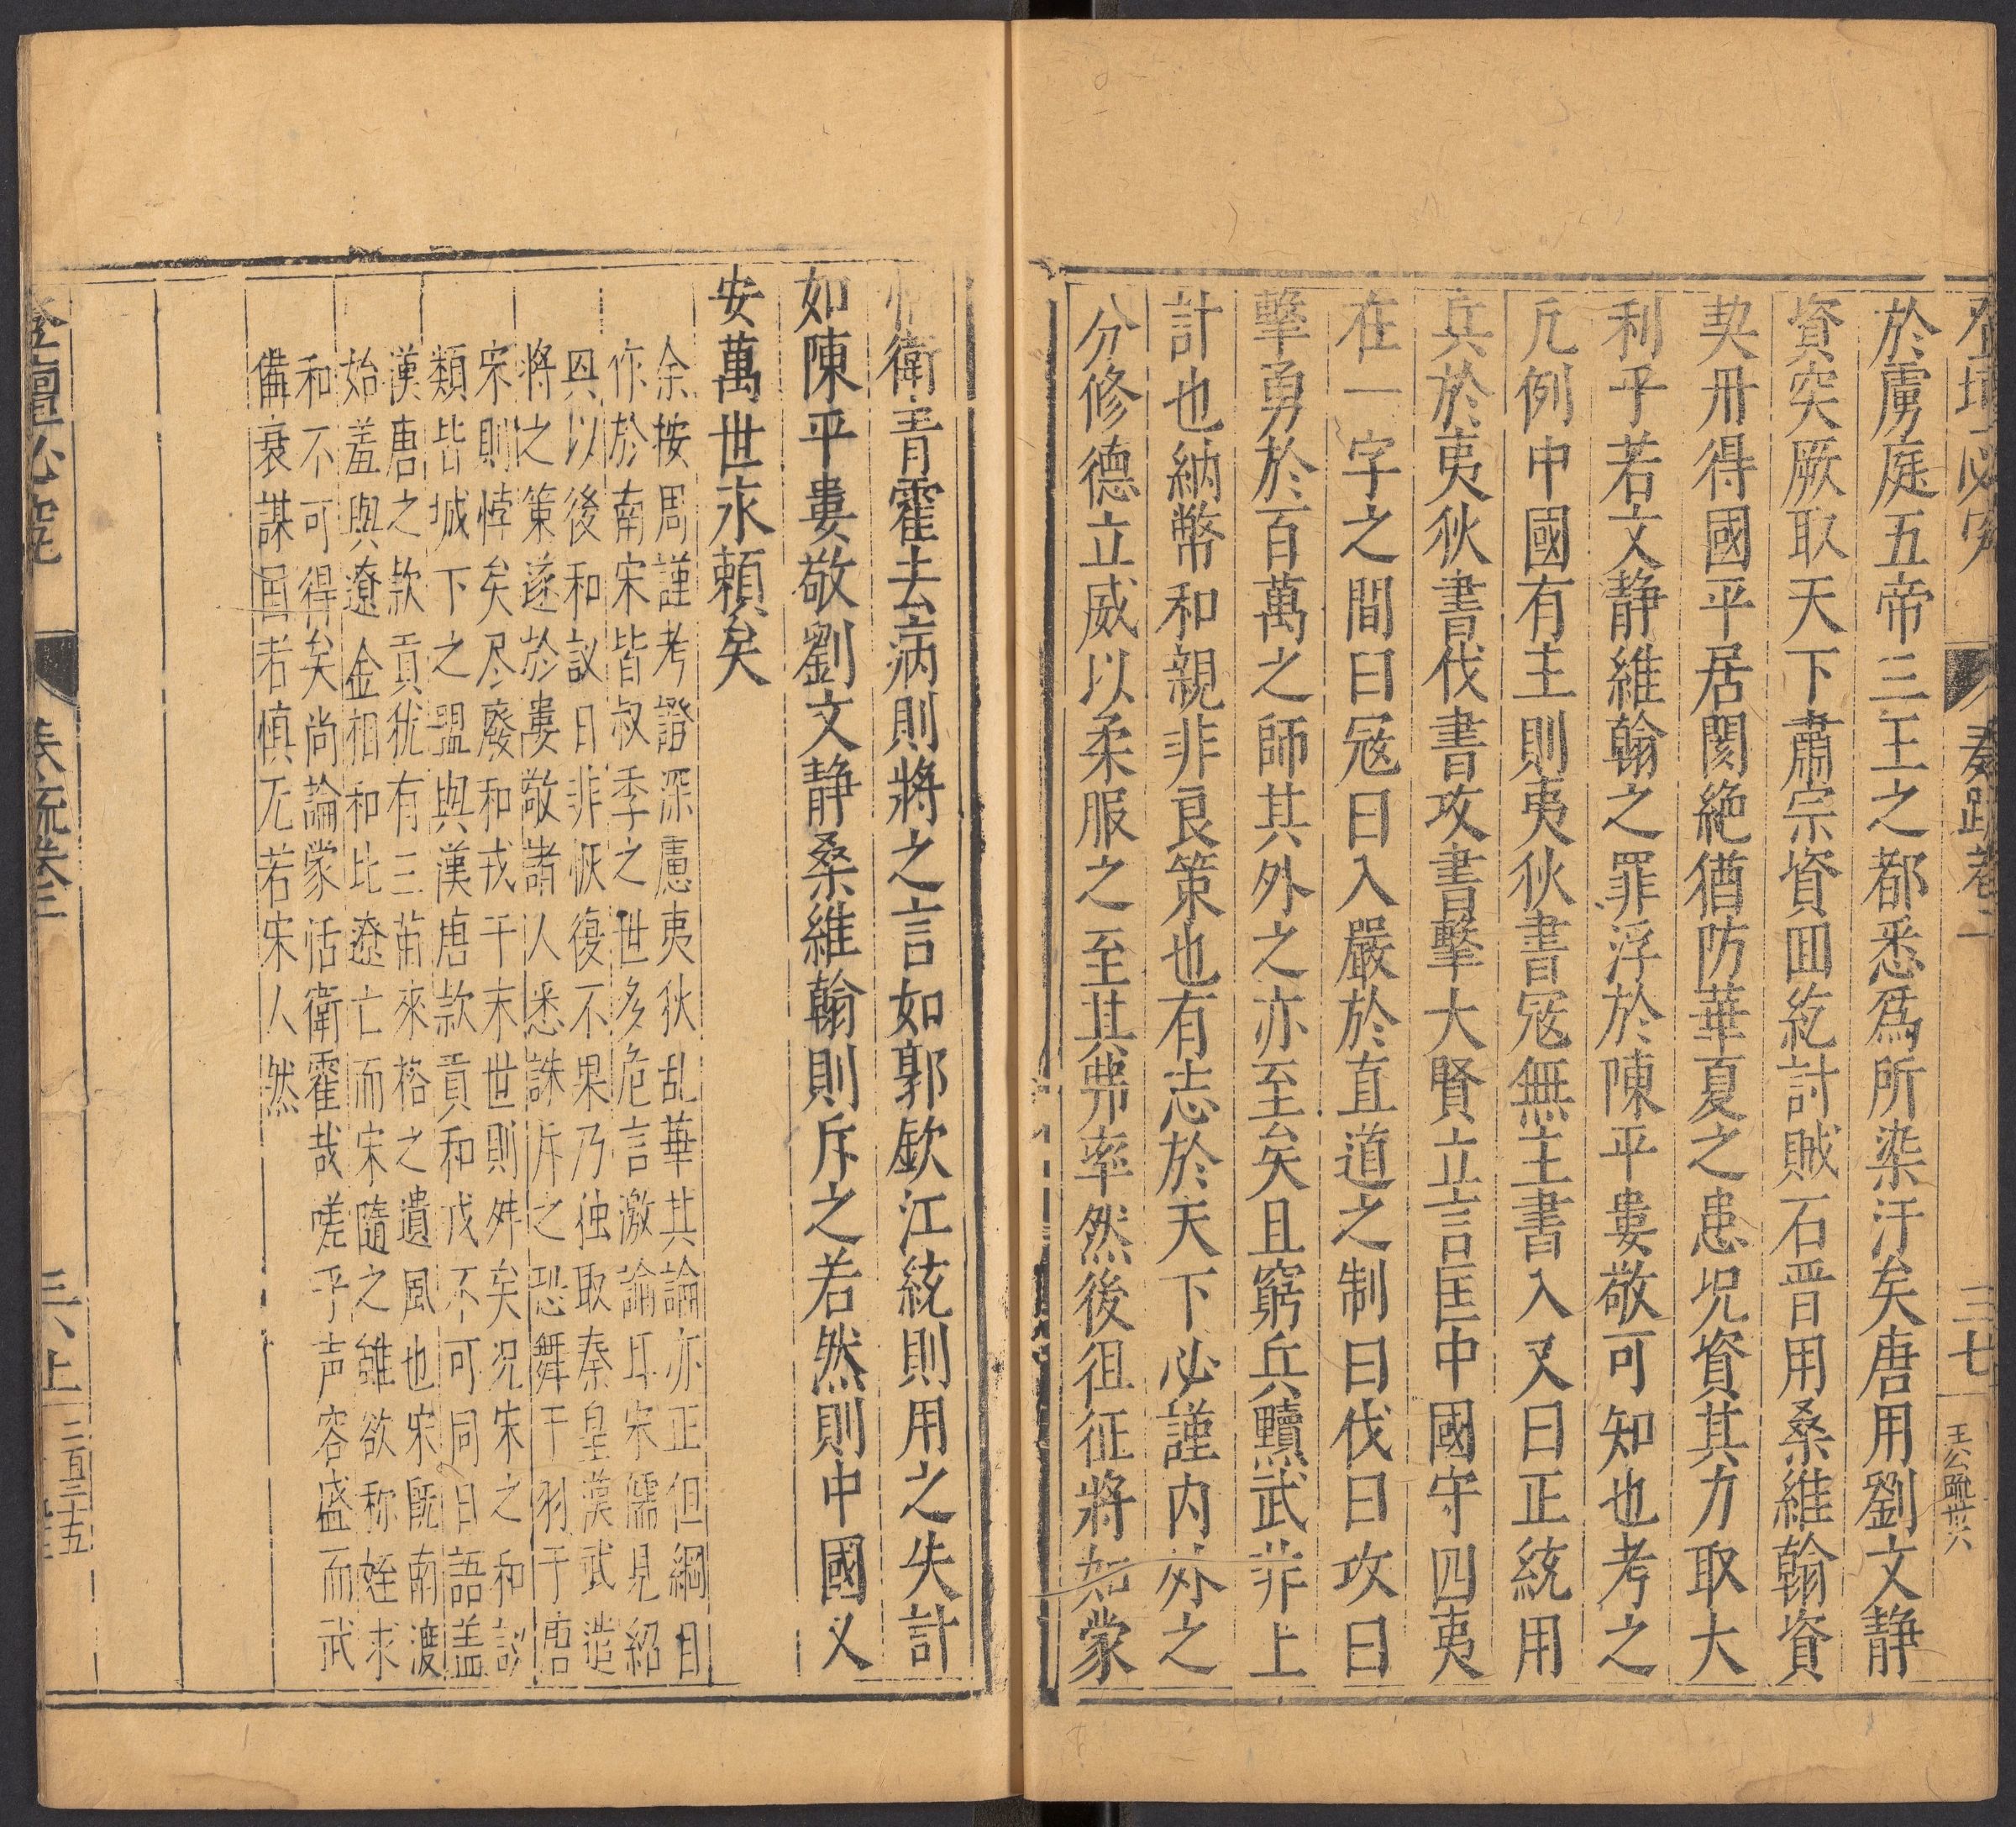 奏疏卷二
三七
王公疏卅六
於虜庭五帝三王之都悉爲所染汙矣唐用劉文静
資突厥取天下肅宗資回紇討賊石晋用桑維翰資
契丹得國平居閡絶猶防華夏之患况資其力取大
利乎若文静維翰之罪浮於陳平婁敬可知也考之
凡例中國有主則夷狄書冦無主書入又曰正統用
兵於夷狄書伐書攻書擊大賢立言匡中國守四夷
在一字之間曰冦曰入嚴於直道之制曰伐曰攻曰
擊勇於百萬之師其外之亦至矣且窮兵黷武非上
計也納幣和親非良策也有志於天下必謹内外之
分修德立威以柔服之至其弗率然後徂征將如蒙
恬衛青霍去病則將之言如郭欽江統則用之失計
如陳平婁敬劉文静桑維翰則斥之若然則中國乂
安萬世永頼矣
余按周謹考證深慮夷狄乱華其論亦正但綱目
作於南宋皆叔季之世多危言激論耳宋儒見紹
興以後和議日非恢復不果乃独取秦皇漢武造
將之策遂於婁敬諸人悉誅斥之恐舞干羽于唐
宋則悖矣尽廢和戎于末世則舛矣况宋之和議
類皆城下之盟與漢唐款貢和戎不可同日語盖
漢唐之款貢犹有三苗來格之遺風也宋旣南渡
始羞與遼金相和比遼亡而宋隨之雖欲称姪求
和不可得矣尚論蒙恬衛霍哉嗟乎声容盛而武
備衰謀国者慎无若宋人然
登壇必究
奏疏卷三
三八上
二百三十五